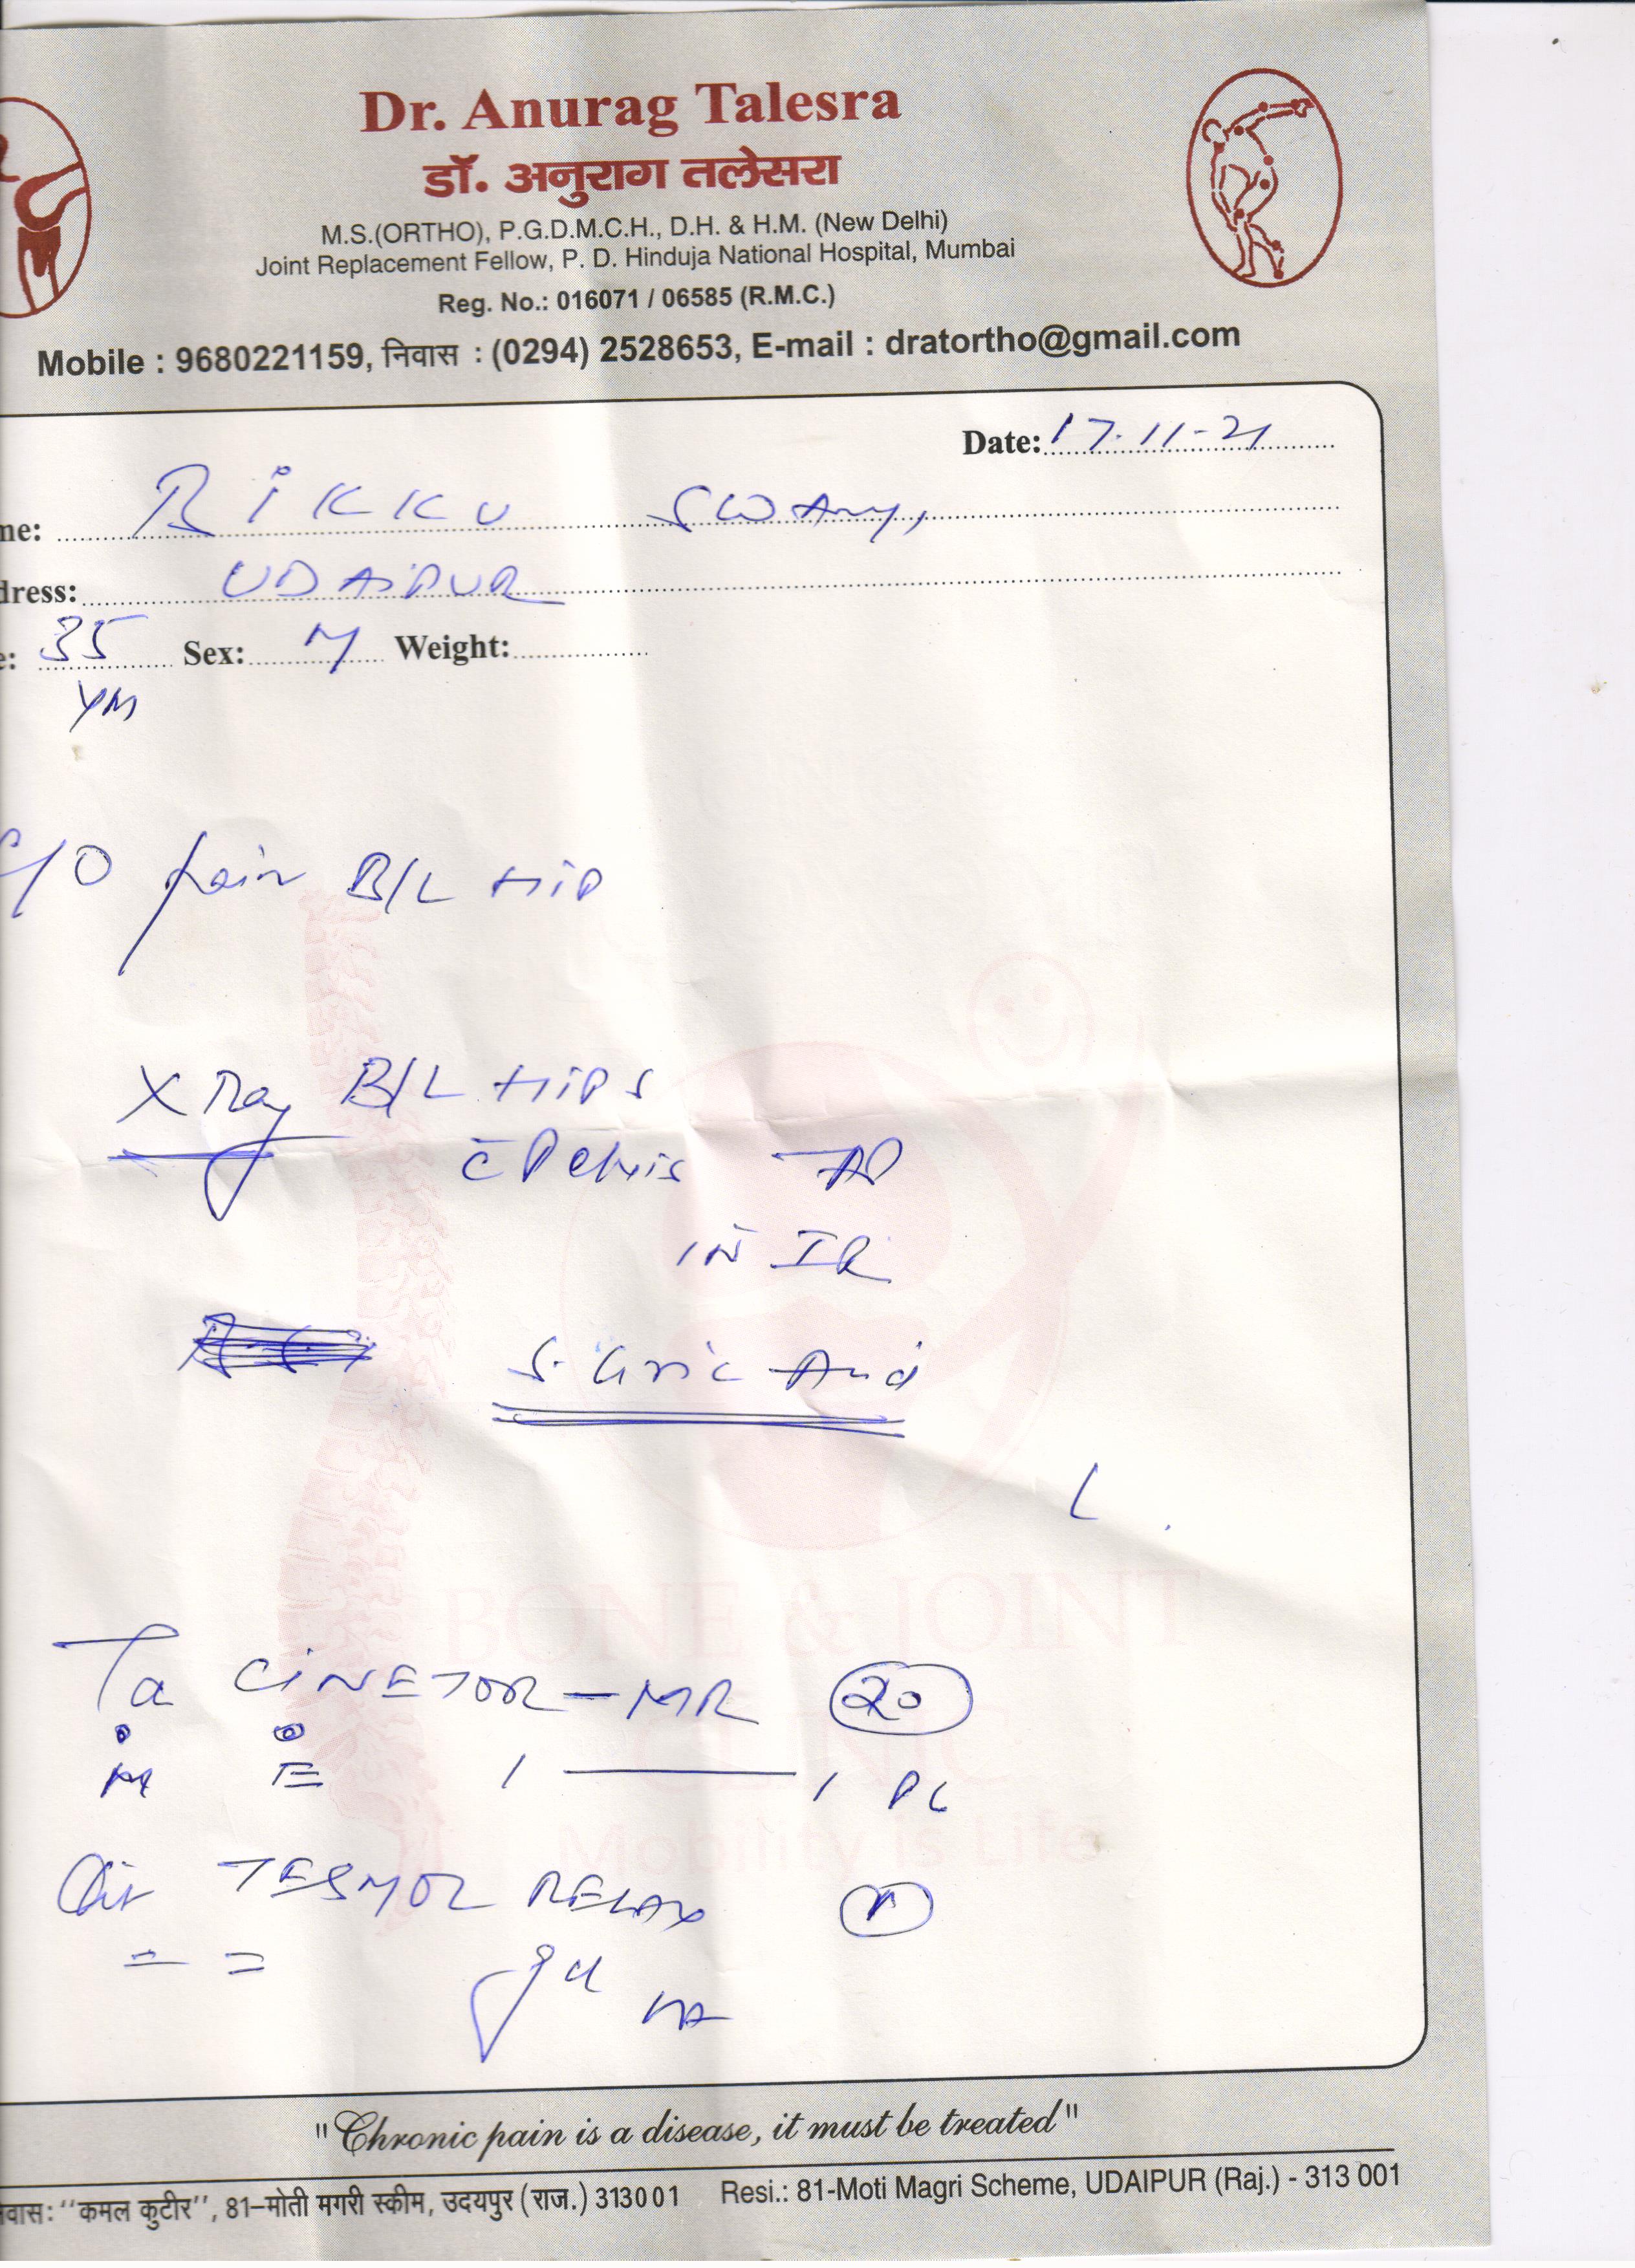 Dr. Anurag Talesra
डॉ. अनुराग तलेसरा
M.S.(ORTHO), P.G.D.M.C.H., D.H. & H.M. (New Delhi)
Joint Replacement Fellow, P. D. Hinduja National Hospital, Mumbai
Reg. No.: 016071 / 06585 (R.M.C.)
Mobile : 9680221159, निवास : (0294) 2528653, E-mail : dratortho@gmail.com
Date: 17-11-21
me: RiKKU SWAmy,
dress: UDAiPUR
e: 35 Sex: M Weight:
YM
C/O pain B/L HiP
X Ray B/L HiPS
c̄ Pelvis AP
IN IR
S. Uric Acid
BONE & JOINT
CLINIC
Ta CiNETOR-MR 20
M E 1 1 PC
Mobility is Life
RELAX
"Chronic pain is a disease, it must be treated"
वास: ''कमल कुटीर'', 81-मोती मगरी स्कीम, उदयपुर (राज.) 313001 Resi.: 81-Moti Magri Scheme, UDAIPUR (Raj.) - 313 001